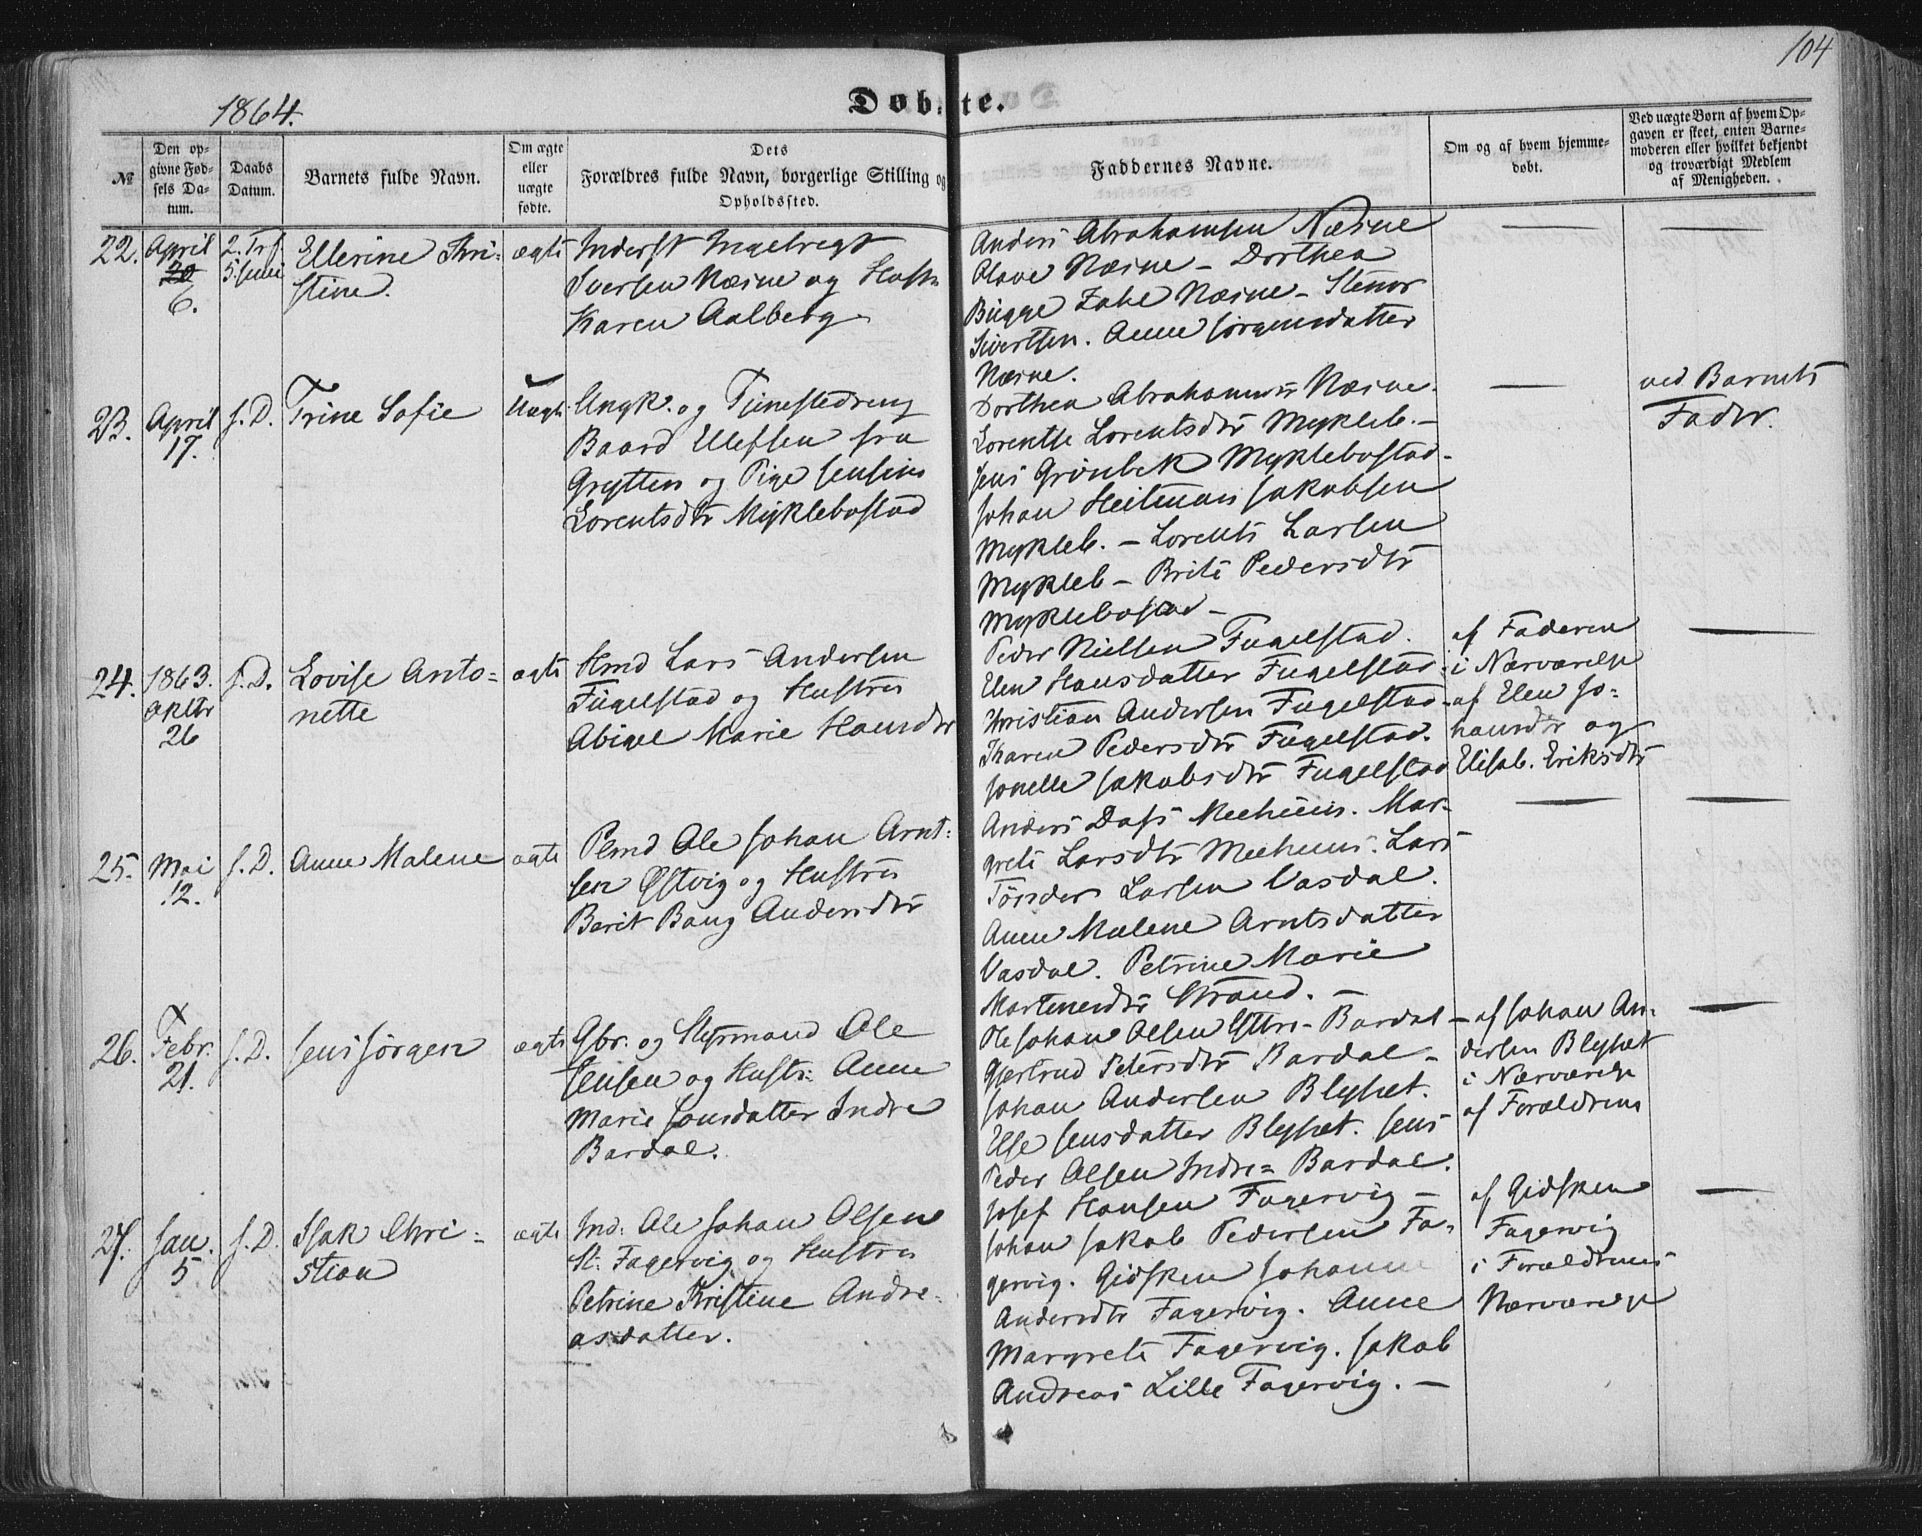 104
1864.
Døbte.
№
Den op-
givne Fød-
sels Da-
tum.
Daabs
Datum.
Barnets fulde Navn.
Om ægte
eller
uægte
fødte.
Dets
Forældres fulde Navn, borgerlige Stilling og
Opholdssted.
Faddernes Navne.
Om og af hvem hjemme-
døbt.
Ved uægte Børn af hvem Op-
gaven er skeet, enten Barne-
moderen eller hvilket bekjendt
og troværdigt Medlem
af Menigheden.
22.
April
20
6.
2. Trf.
5 Juni
Ellerine Kri-
stine.
ægte
Inderst Ingebregt
Iversen Næsne og Hustr
Karen Aalberg
Anders Abrahamsen Næsne
Olave Næsne – Dorthea
Bügge Zahl Næsne –
Sivertsen. Anne Jørgensdatter
Næsne.
23.
April
17.
s. D.
Trine Sofie
Uægte
Ungk. og Tjenestedreng
Baard Ellefsen fra
Grytten og Pige Jensine
Lorentsdtr Myklebostad
Dorthea Abrahamsdtr Næsne.
Lorentse Lorentsdtr Mykleb. –
Jens Grönbek Myklebostad.
Johan Heitman Jakobsen
Mykleb. – Lorents Larsen
Mykleb – Brite Pedersdtr
Myklebostad –
ved Barnets
Fader.
24.
1863.
Oktbr
26
s. D.
Lovise Anto=
nette
ægte
Hmd Lars Andersen
Fügelstad og Hustru
Abigel Marie Hansdtr
Peder Nielsen Fugelstad.
Elen Hansdatter Fugelstad.
Christian Andersen Fugelstad.
Karen Pedersdtr Fugelstad.
Jonelle Jakobsdtr Fugelstad
af Faderen
i Nærværelse
af Elen Jo=
hansdtr og
Elisab. Eriksdtr
25.
Mai
12.
s. D.
Anne Malene
ægte
Pmd Ole Johan Arnt=
sen Østvig og Hustru
Berit Bang Andersdtr
Anders Dass Meehuus. Mar-
grete Larsdtr Meehuus. Lars
Tønder Larsen Vasdal.
Anne Malene Arntsdatter
Vasdal. Petrine Marie
Mortensdtr Strand. –
26.
Febr.
21.
s. D.
Jens Jørgen
ægte
Gbr. og Styrmand Ole
Jensen og Hustr: Anne
Marie Jonsdatter Indre
Bardal.
Ole Johan Olsen Yttre-Bardal –
Gjertrud Petersdtr Bardal –
Johan Andersen Blyset.
Else Jensdatter Blyset. Jens
Peder Olsen Indre= Bardal.
af Johan An-
dersen Blyset
i Nærværelse
af Forældrene
27.
Jan.
5
s. D.
Isak Chri=
stian
ægte
Ind: Ole Johan Olsen
St: Fagervig og Hustru
Petrine Kristine Andre-
asdatter.
Josef Hansen Fagervig –
Johan Jakob Pedersen Fa-
gervig. Gidsken Johanne
Andersdtr Fagervig. Anne
Margrete Fagervig. Jakob
Andreas Lille Fagervig. –
af Gidsken
Fagervig
i Forældrenes
Nærværelse